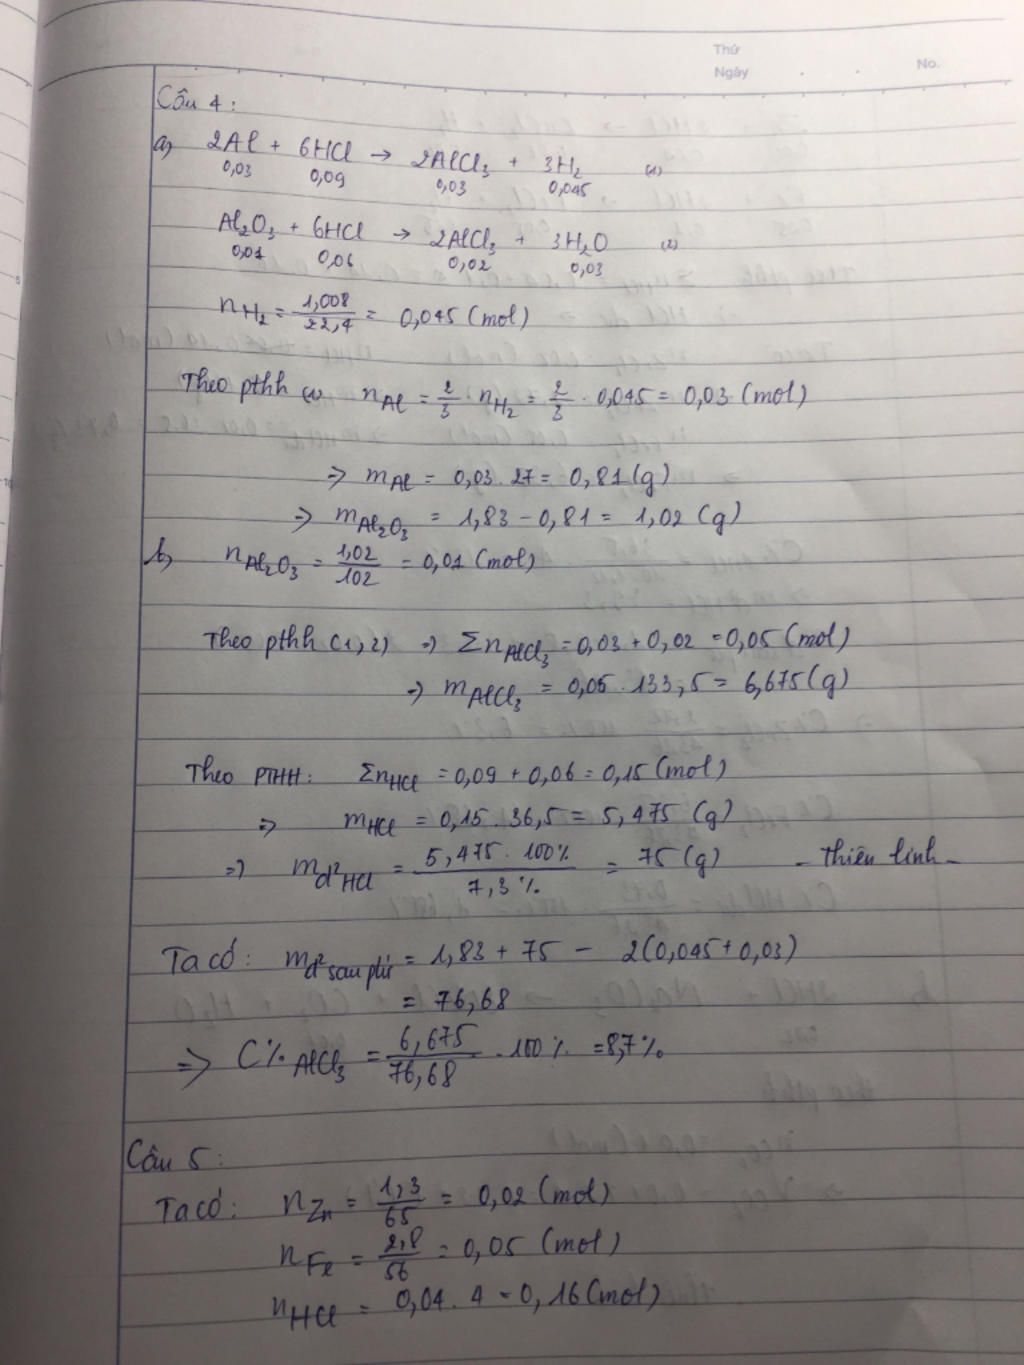 Thứ
Ngày . . No.
Câu 4 :
a, 2Al + 6HCl → 2AlCl3 + 3H2 (1)
0,03 0,09 0,03 0,045
Al2O3 + 6HCl → 2AlCl3 + 3H2O (2)
0,01 0,06 0,02 0,03
nH2 = 1,008/22,4 = 0,045 (mol)
Theo pthh (1) nAl = 2/3 . nH2 = 2/3 . 0,045 = 0,03 (mol)
=> mAl = 0,03 . 27 = 0,81 (g)
=> mAl2O3 = 1,83 - 0,81 = 1,02 (g)
b, nAl2O3 = 1,02/102 = 0,01 (mol)
Theo pthh (1,2) => ΣnAlCl3 = 0,03 + 0,02 = 0,05 (mol)
=> mAlCl3 = 0,05 . 133,5 = 6,675 (g)
Theo PTHH : ΣnHCl = 0,09 + 0,06 = 0,15 (mol)
=> mHCl = 0,15 . 36,5 = 5,475 (g)
=> md2HCl = 5,475 . 100%/7,3% = 75 (g) - Thiên linh -
Ta có : md2 sau pứ = 1,83 + 75 - 2(0,045 + 0,03)
= 76,68
=> C% AlCl3 = 6,675/76,68 . 100% = 8,7%
Câu 5 :
Ta có : nZn = 1,3/65 = 0,02 (mol)
nFe = 2,8/56 = 0,05 (mol)
nHCl = 0,04 . 4 = 0,16 (mol)